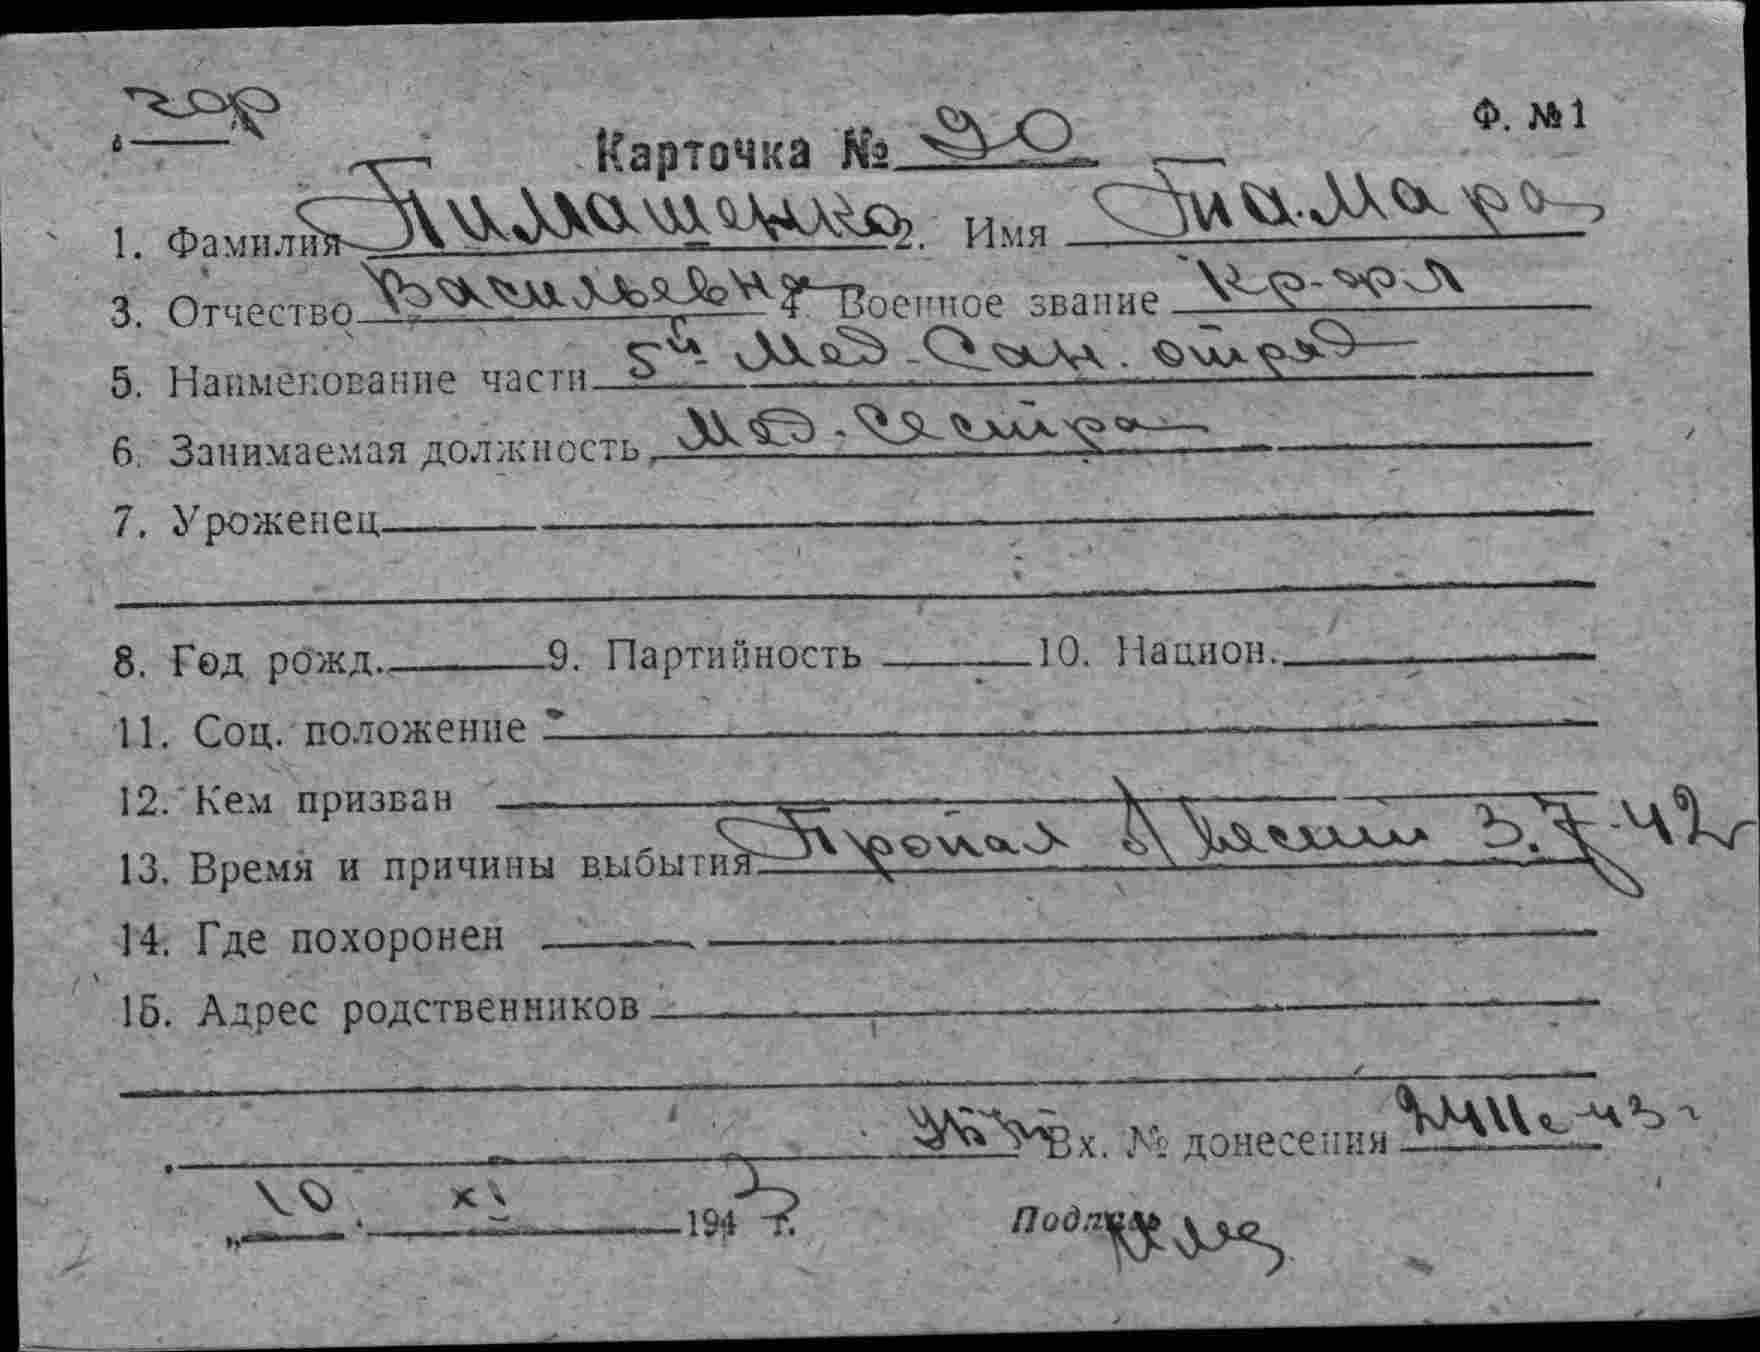 гор
Ф. №1
Карточка № 90
1. Фамилия Тимашенко 2. Имя Тамара
3. Отчество Васильевна 4. Военное звание кр-арм
5. Наименование части 5й Мед-Сан. отряд
6. Занимаемая должность Мед. Сестра
7. Уроженец
8. Год рожд. 9. Партийность 10. Национ.
11. Соц. положение
12. Кем призван
13. Время и причины выбытия Пропал б/вести 3.7.42
14. Где похоронен
15. Адрес родственников
Вх. № донесения 43г
„10 XI 1943 г. Подпись